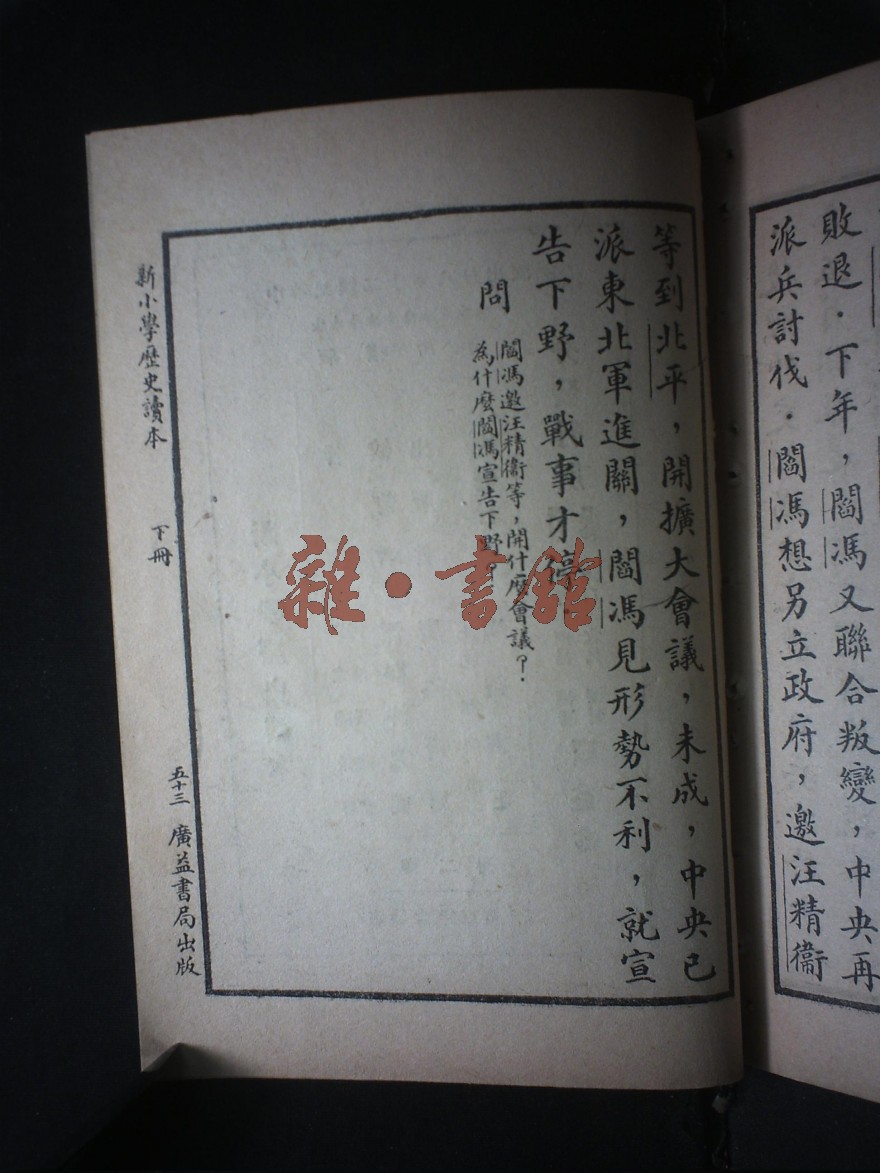 敗退．下年，閻馮又聯合叛變，中央再
派兵討伐．閻馮想另立政府，邀汪精衞
等到北平，開擴大會議，未成，中央已
派東北軍進關，閻馮見形勢不利，就宣
告下野，戰事才停．
問
閻馮邀汪精衞等，開什麼會議？
為什麼閻馮宣告下野？
新小學歷史讀本
下冊
五十三
廣益書局出版
雜·書館